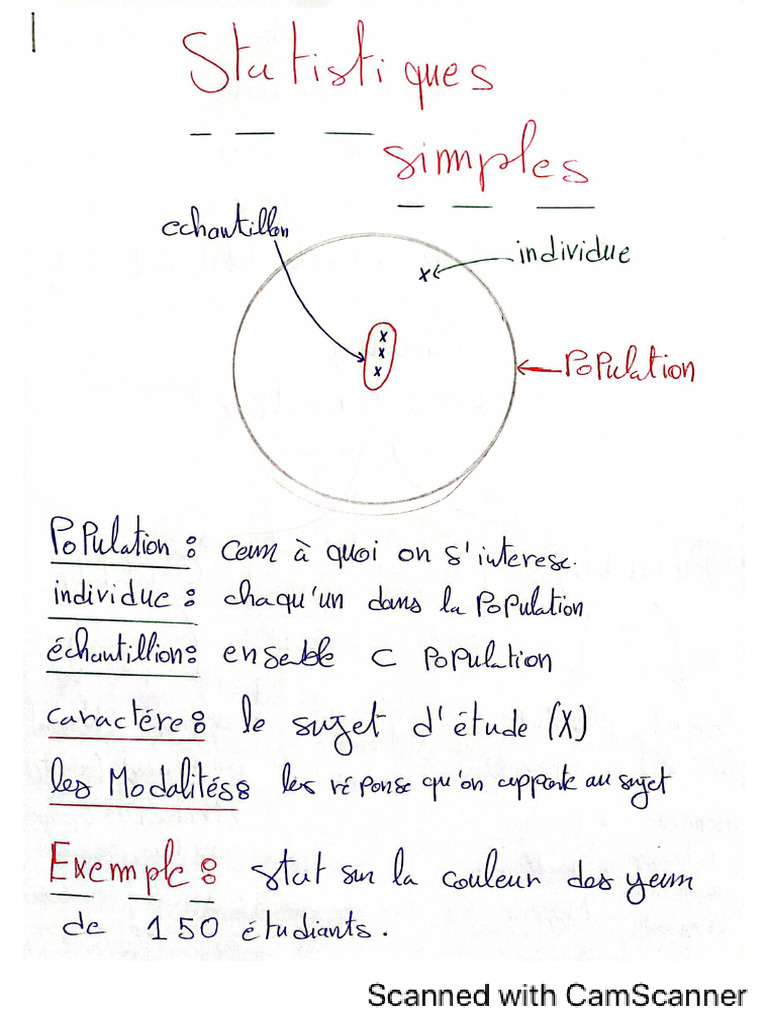 Statistiques
simples
echantillon
individue
POPulation
POPulation : Ceux à quoi on s'interese.
individue : chaqu'un dans la POPulation
échantillion : ensable ⊂ POPulation
caractére : le sujet d'étude (X)
les Modalités : les réponse qu'on apporte au sujet
Exemple : stat sur la couleur des yeux
de 150 étudiants.
Scanned with CamScanner